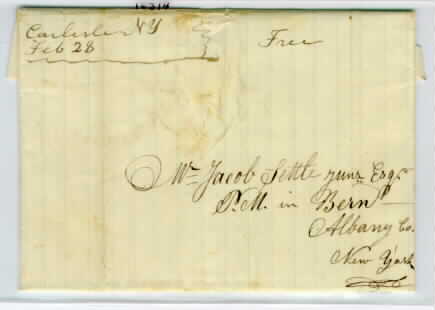 Carlisle NY
Feb 28
Free
Mr Jacob Settle junr Esqr
P.M. in Bern
Albany Co.
New York